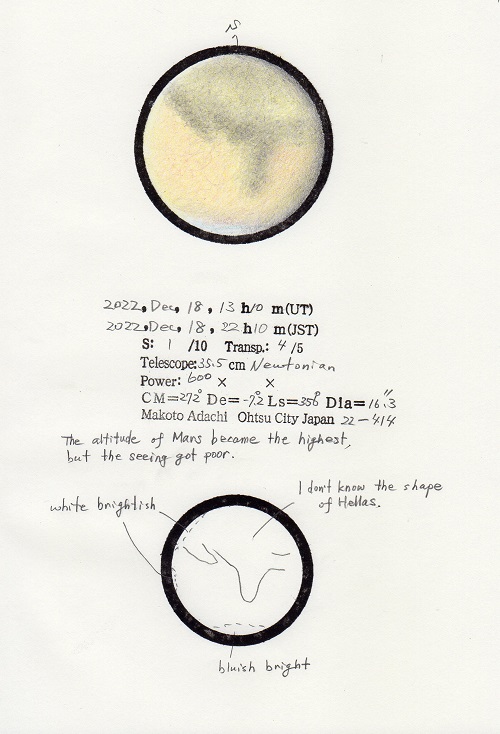 S
2022, Dec, 18, 13 h 10 m (UT)
2022, Dec, 18, 22 h 10 m (JST)
S: 1 /10 Transp.: 4 /5
Telescope: 35.5 cm Newtonian
Power: 600 × ×
CM=272° De=-7.2 Ls=356° Dia=16.″3
Makoto Adachi Ohtsu City Japan 22-414
The altitude of Mars became the highest,
but the seeing got poor.
I don't know the shape
of Hellas.
white brightish
bluish bright